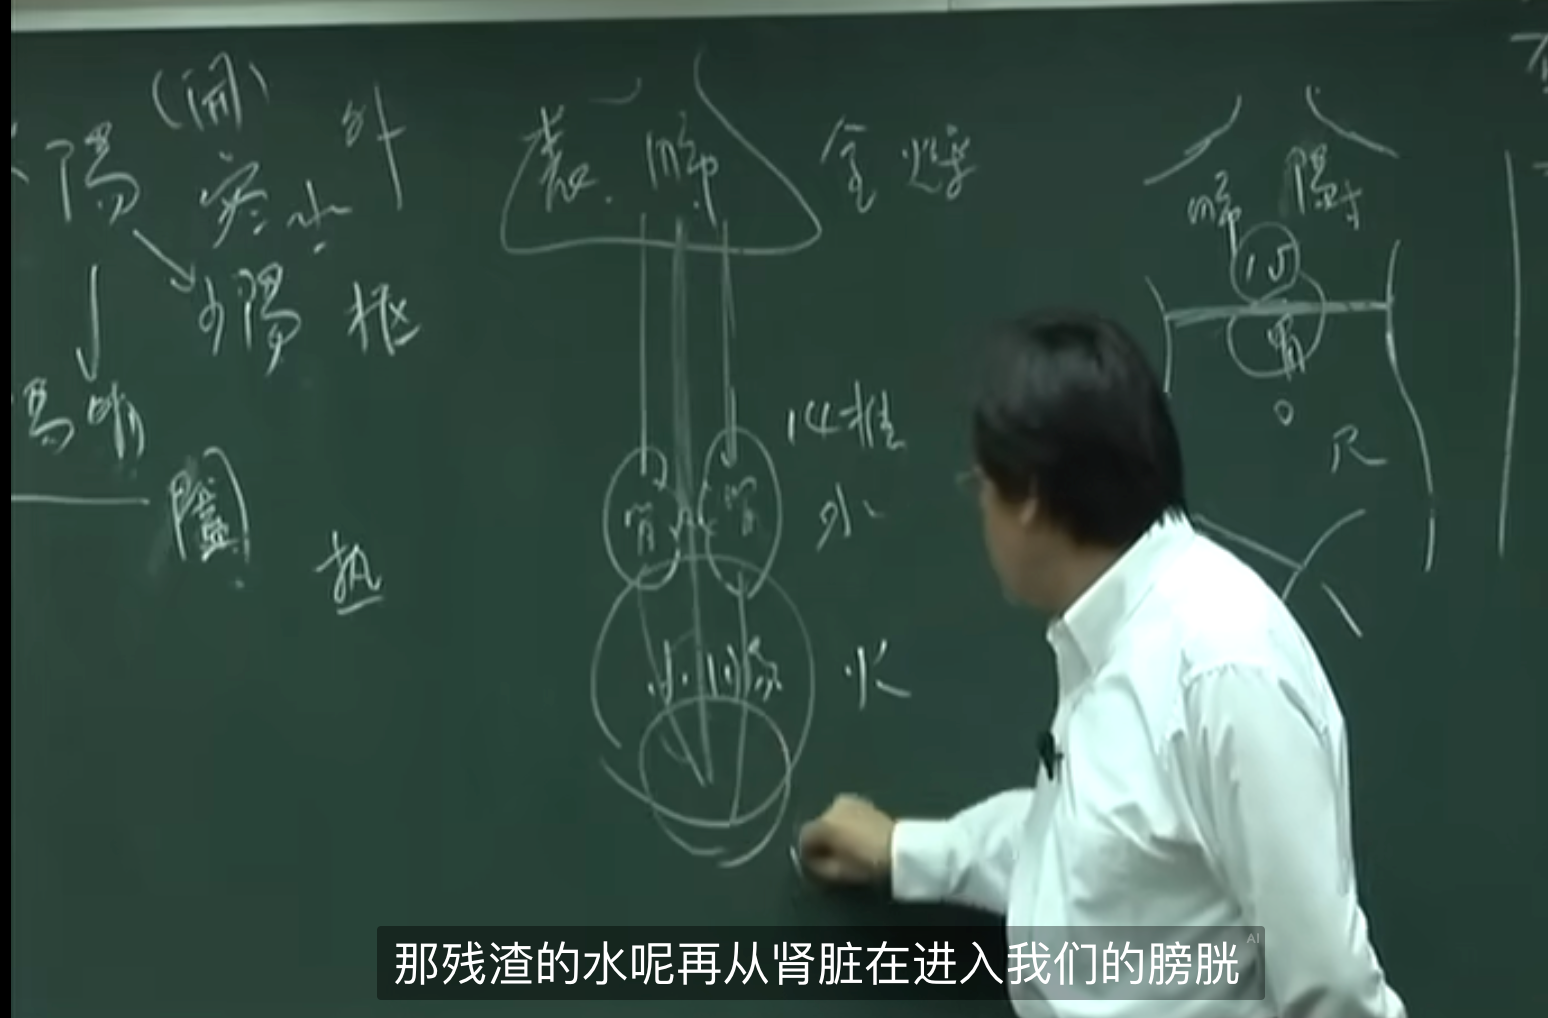 (開) 外
陽 寒 水
少陽 樞
陽明
闔
热
表 肺 金
14椎
腎 腎 水
小腸 火
肺 隔
心
胃
尺
那残渣的水呢再从肾脏在进入我们的膀胱
AI